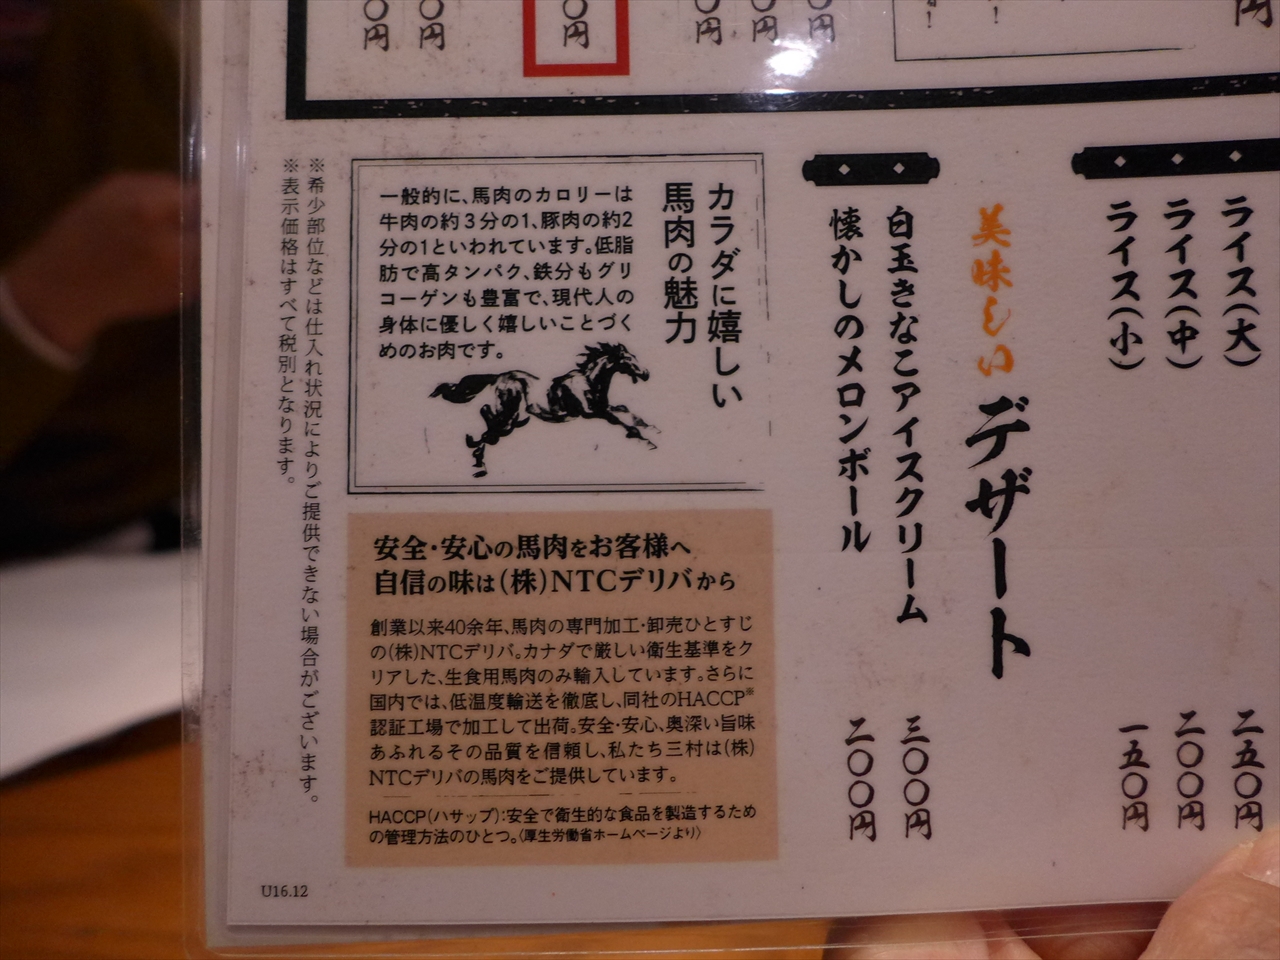 円
円
円
円
円
円
円
ライス(大)
二五〇円
ライス(中)
二〇〇円
ライス(小)
一五〇円
美味しいデザート
白玉きなこアイスクリーム
三〇〇円
懐かしのメロンボール
二〇〇円
カラダに嬉しい
馬肉の魅力
一般的に、馬肉のカロリーは
牛肉の約3分の1、豚肉の約2
分の1といわれています。低脂
肪で高タンパク、鉄分もグリ
コーゲンも豊富で、現代人の
身体に優しく嬉しいことづく
めのお肉です。
安全・安心の馬肉をお客様へ
自信の味は(株)NTCデリバから
創業以来40余年、馬肉の専門加工・卸売ひとすじ
の(株)NTCデリバ。カナダで厳しい衛生基準をク
リアした、生食用馬肉のみ輸入しています。さらに
国内では、低温度輸送を徹底し、同社のHACCP※
認証工場で加工して出荷。安全・安心、奥深い旨味
あふれるその品質を信頼し、私たち三村は(株)
NTCデリバの馬肉をご提供しています。
HACCP(ハサップ):安全で衛生的な食品を製造するため
の管理方法のひとつ。〈厚生労働省ホームページより〉
※希少部位などは仕入れ状況によりご提供できない場合がございます。
※表示価格はすべて税別となります。
U16.12